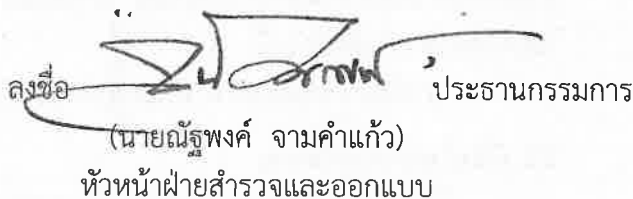 ลงชื่อ ประธานกรรมการ
(นายณัฐพงค์ จามคำแก้ว)
หัวหน้าฝ่ายสำรวจและออกแบบ